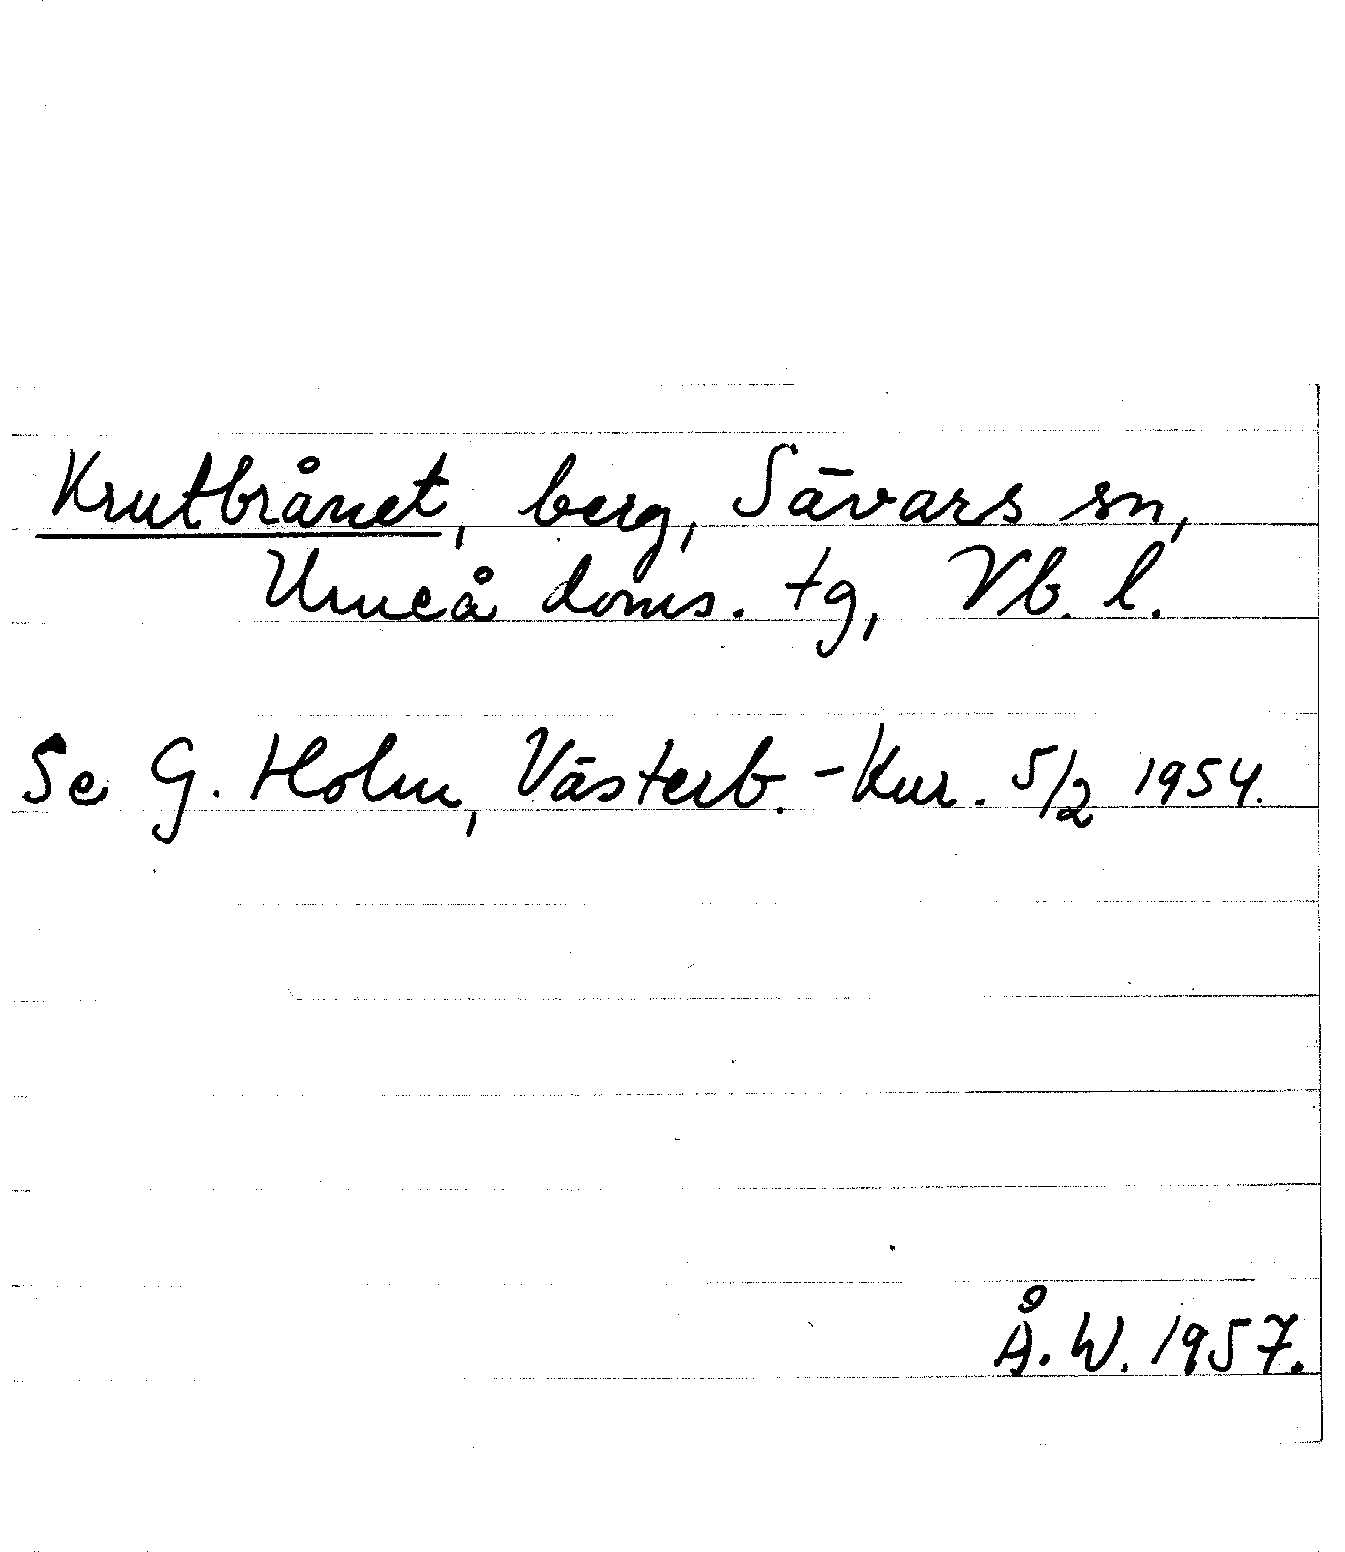 Krutbrånet, berg, Sävars sn,
Umeå doms. tg, Vb. l.
Se G. Holm, Västerb.-Kur. 5/2 1954.
Å. W. 1957.